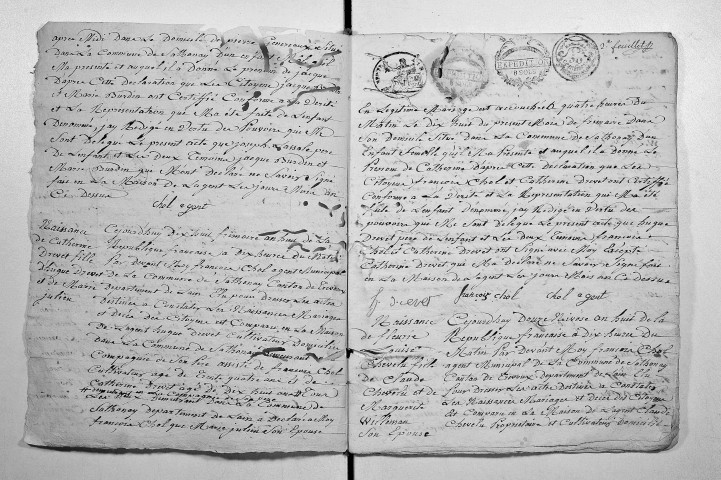 après Midi dans Le Domicile de pierre
Dans La Commune de Sathonay D'un enfant
Ma presenté et auquel il a Donné Le prenom de jacque
D'apres Cette Declaration que Les Citoyens jacque Burdin
et Marie Burdin ont Certiffié Conforme a la Verité
et La Representation que Ma eté faite de L'enfant
Denommé, j'ay Redigé en Vertu des pouvoirs qui Me
Sont Delegué Le present acte que joseph Lassale pere
De L'enfant et Les deux temoins jacque Burdin et
Marie Burdin que Mont Declaré ne Savoir Signé
fait en La Maison de L'agent Les jour Mois an
Ci Dessus
chol agent
Naissance
de Catherine
Drevet fille
d'hugue drevet
et de Marie
julien
Cejourdhuy Dix huit frimaire an huit de La
Republique française a dix heures du Matin
par Devant Moy françois Chol agent Municipal
De La Commune de Sathonay Canton de
Departement de L'ain Elu pour Dresser Les actes
Destiné a Constater Les Naissances Mariages
et deces des Citoyens est Comparu en La Maison
De L'agent hugue drevet Cultivateur Domicilié
Dans La Commune de Sathonay
Compagnie de Son fils assisté de françois Chol
Cultivateur agé de trente quatre ans et de
Catherine Drevet agé de dix huit ans tous
Les deux Demeurant Dans La Commune de
Sathonay departement de L'ain a Declaré a Moy
françois Chol que Marie julien Son Epouse
2e feuillet
EXPEDITION
En Legitime Mariage est accouché a quatre heures Du
Matin Le dix huit du present Mois de frimaire Dans
Son Domicile Situé dans La Commune de Sathonay D'un
Enfant femelle qu'il Ma Presenté et auquel il a Donné Le
Prenom de Catherine D'apres Cette declaration que Les
Citoyens françois Chol et Catherine Drevet ont Certiffié
Conforme a La Verité et La Representation qui Ma eté
faite de L'enfant Denommé j'ay Redigé en Vertu des
pouvoirs qui Me Sont delegué Le present acte que hugue
Drevet pere de L'enfant et Les deux temoins françois
Chol et Catherine Drevet
Catherine Drevet que Ma declaré ne Savoir Signé fait
en La Maison de L'agent Les jour Mois an Ci dessus
drevet françois chol chol agent
Naissance
de fleurie
Chevelu fille
de Claude
Chevelu et de
Marguerite
Son Epouse
Cejourdhuy Douze Nivose an huit de la
Republique française a dix heures du
Matin Par Devant Moy françois Chol
agent Municipal De La Commune de Sathonay
Canton de departement de L'ain Elu
Pour dresser Les actes destiné a Constater
Les Naissances Mariages et deces des Citoyens
est Comparu en La Maison de L'agent Claude
Chevelu Proprietaire et Cultivateur Domicilié